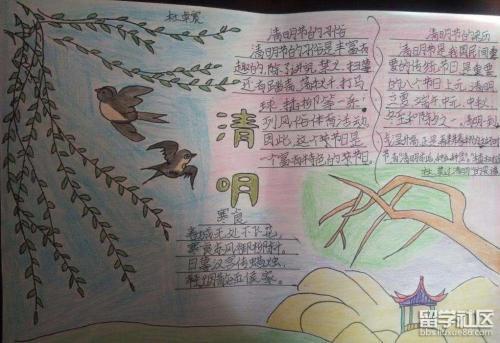 清明节的习俗
清明节的习俗是丰富有
趣的,除了讲究禁火、扫墓
还有踏青、荡秋千、打马
球、插柳等一系
列风俗体育活动
因此,这个节日是
一个富有特色的节日。
清明节的来历
清明节是我国民间重
要的传统节日,是重要
的八个节日上元、清明
立夏、端午、中元、中秋
冬至和除夕之一。
清
明
寒食
春城无处不飞花,
寒食东风御柳斜。
日暮汉宫传蜡烛,
轻烟散入五侯家。
留学社区
bbs.liuxue86.com